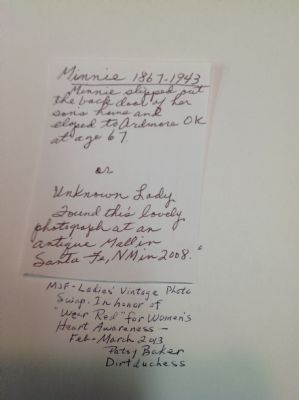 Minnie 1867-1943
Minnie slipped out
the back door of her
sons home and
eloped to Ardmore OK
at age 67
or
Unknown Lady
Found this lovely
photograph at an
"antique Mall in
Santa Fe, NM in 2008."
MJF-Ladies' Vintage Photo
Swap. In honor of
"Wear Red" for Women's
Heart Awareness -
Feb-March 2013
Patsy Baker
Dirtduchess